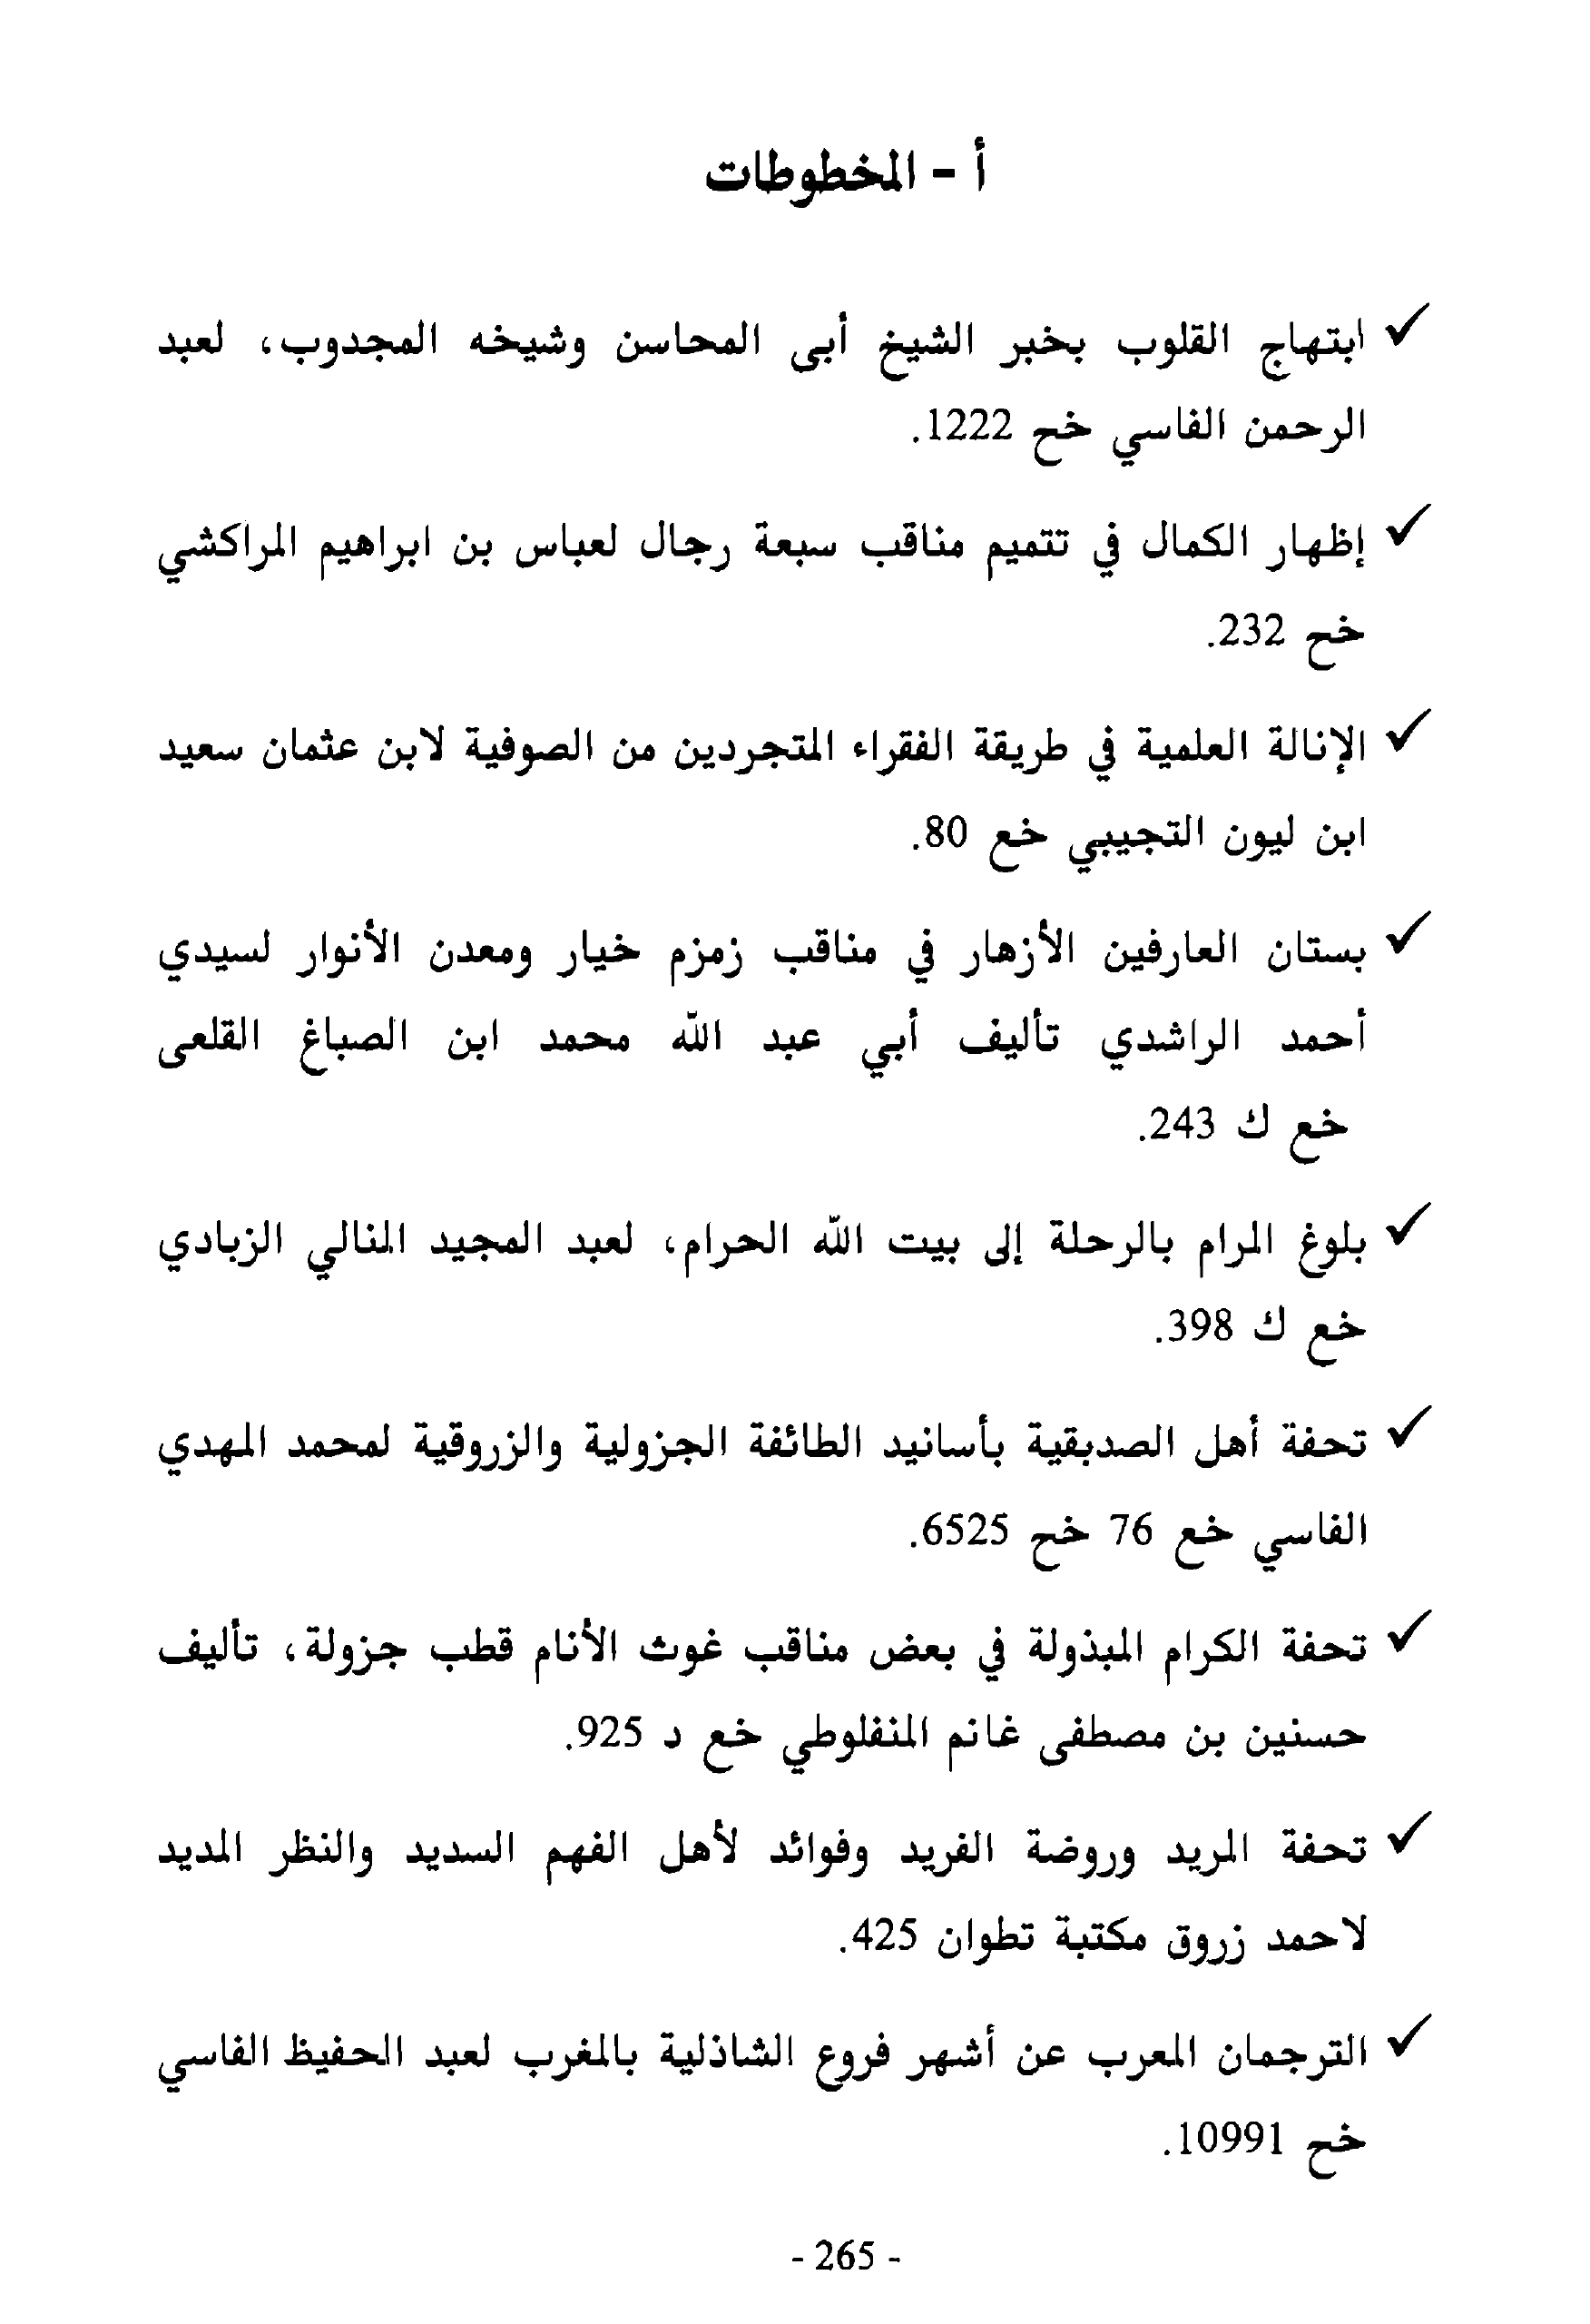 أ - المخطوطات
✓ ابتهاج القلوب بخبر الشيخ أبى المحاسن وشيخه المجدوب، لعبد
الرحمن الفاسي خح 1222.
✓ إظهار الكمال في تتميم مناقب سبعة رجال لعباس بن ابراهيم المراكشي
خح 232.
✓ الإنالة العلمية في طريقة الفقراء المتجردين من الصوفية لابن عثمان سعيد
ابن ليون التجيبي خع 80.
✓ بستان العارفين الأزهار في مناقب زمزم خيار ومعدن الأنوار لسيدي
أحمد الراشدي تأليف أبي عبد الله محمد ابن الصباغ القلعى
خع ك 243.
✓ بلوغ المرام بالرحلة إلى بيت الله الحرام، لعبد المجيد المنالي الزبادي
خع ك 398.
✓ تحفة أهل الصديقية بأسانيد الطائفة الجزولية والزروقية لمحمد المهدي
الفاسي خع 76 خح 6525.
✓ تحفة الكرام المبذولة في بعض مناقب غوث الأنام قطب جزولة، تأليف
حسنين بن مصطفى غانم المنفلوطي خع د 925.
✓ تحفة المريد وروضة الفريد وفوائد لأهل الفهم السديد والنظر المديد
لاحمد زروق مكتبة تطوان 425.
✓ الترجمان المعرب عن أشهر فروع الشاذلية بالمغرب لعبد الحفيظ الفاسي
خح 10991.
- 265 -